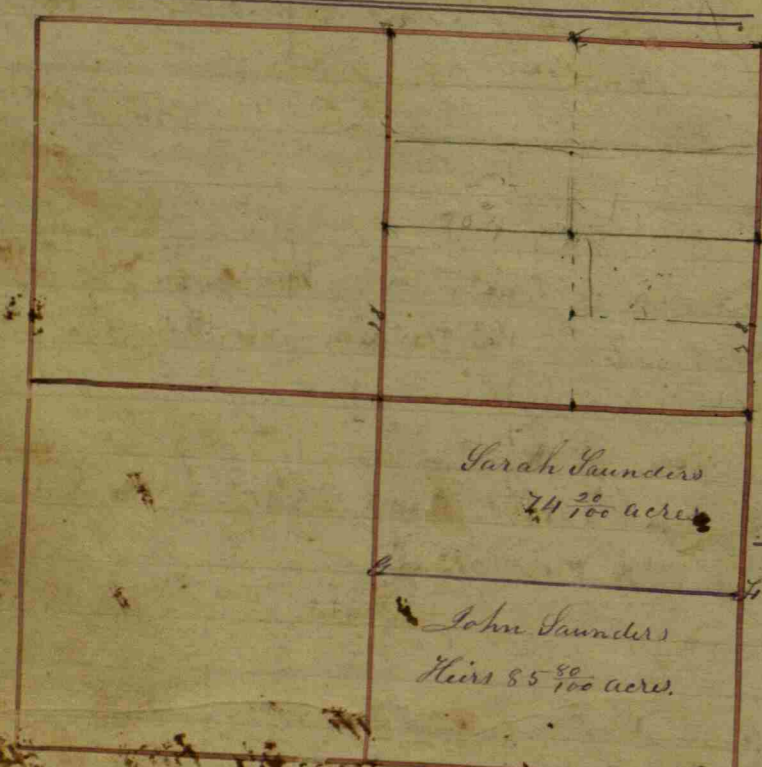 Sarah Saunders
74 20/100 acres
G
John Saunders
Heirs 85 80/100 acres.